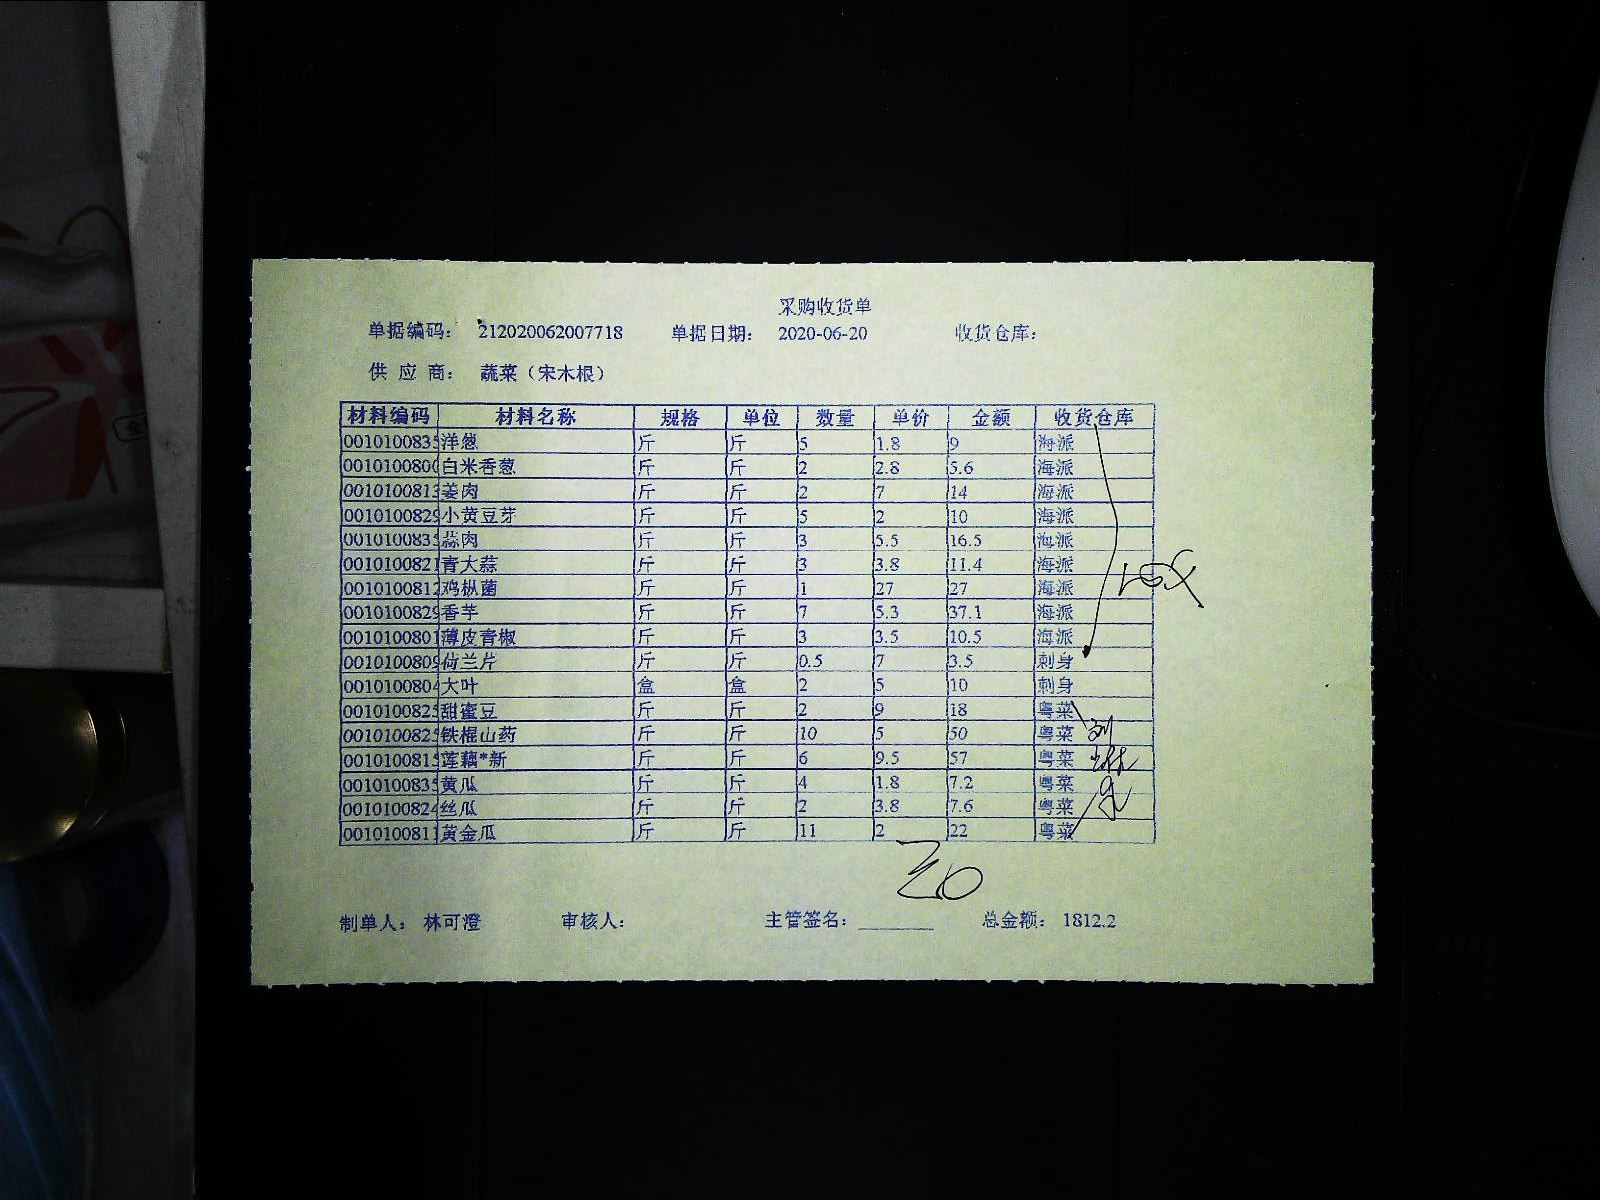 采购收货单
单据编码： 212020062007718 单据日期： 2020-06-20 收货仓库：
供 应 商： 蔬菜（宋木根）
材料编码 材料名称 规格 单位 数量 单价 金额 收货仓库
0010100835 洋葱 斤 斤 5 1.8 9 海派
0010100800 白米香葱 斤 斤 2 2.8 5.6 海派
0010100813 姜肉 斤 斤 2 7 14 海派
0010100829 小黄豆芽 斤 斤 5 2 10 海派
0010100835 蒜肉 斤 斤 3 5.5 16.5 海派
0010100821 青大蒜 斤 斤 3 3.8 11.4 海派
0010100812 鸡枞菌 斤 斤 1 27 27 海派
0010100829 香芋 斤 斤 7 5.3 37.1 海派
0010100801 薄皮青椒 斤 斤 3 3.5 10.5 海派
0010100809 荷兰芹 斤 斤 0.5 7 3.5 刺身
0010100804 大叶 盒 盒 2 5 10 刺身
0010100825 甜蜜豆 斤 斤 2 9 18 粤菜
0010100825 铁棍山药 斤 斤 10 5 50 粤菜
0010100815 莲藕*新 斤 斤 6 9.5 57 粤菜
0010100835 黄瓜 斤 斤 4 1.8 7.2 粤菜
0010100824 丝瓜 斤 斤 2 3.8 7.6 粤菜
0010100811 黄金瓜 斤 斤 11 2 22 粤菜
制单人： 林可澄 审核人： 主管签名： 总金额： 1812.2